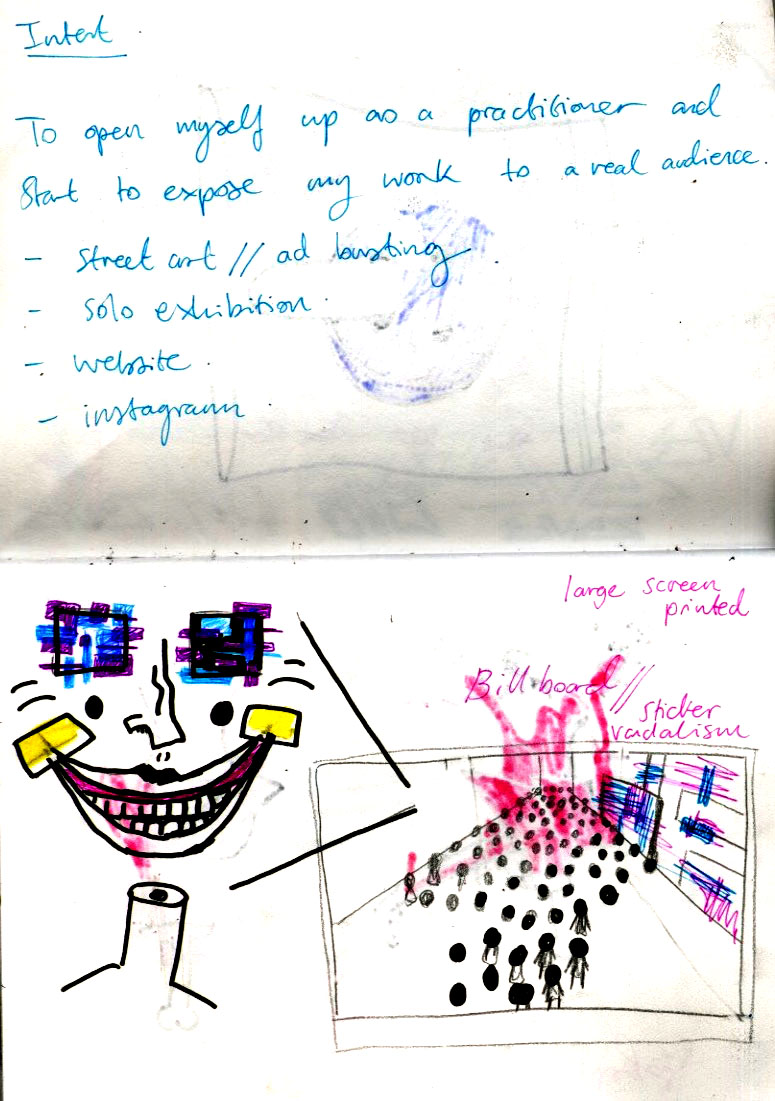 Intent
To open myself up as a practitioner and
Start to expose my work to a real audience.
- street art // ad busting.
- solo exhibition.
- website.
- instagram.
large screen
printed
Billboard //
sticker
vadalism